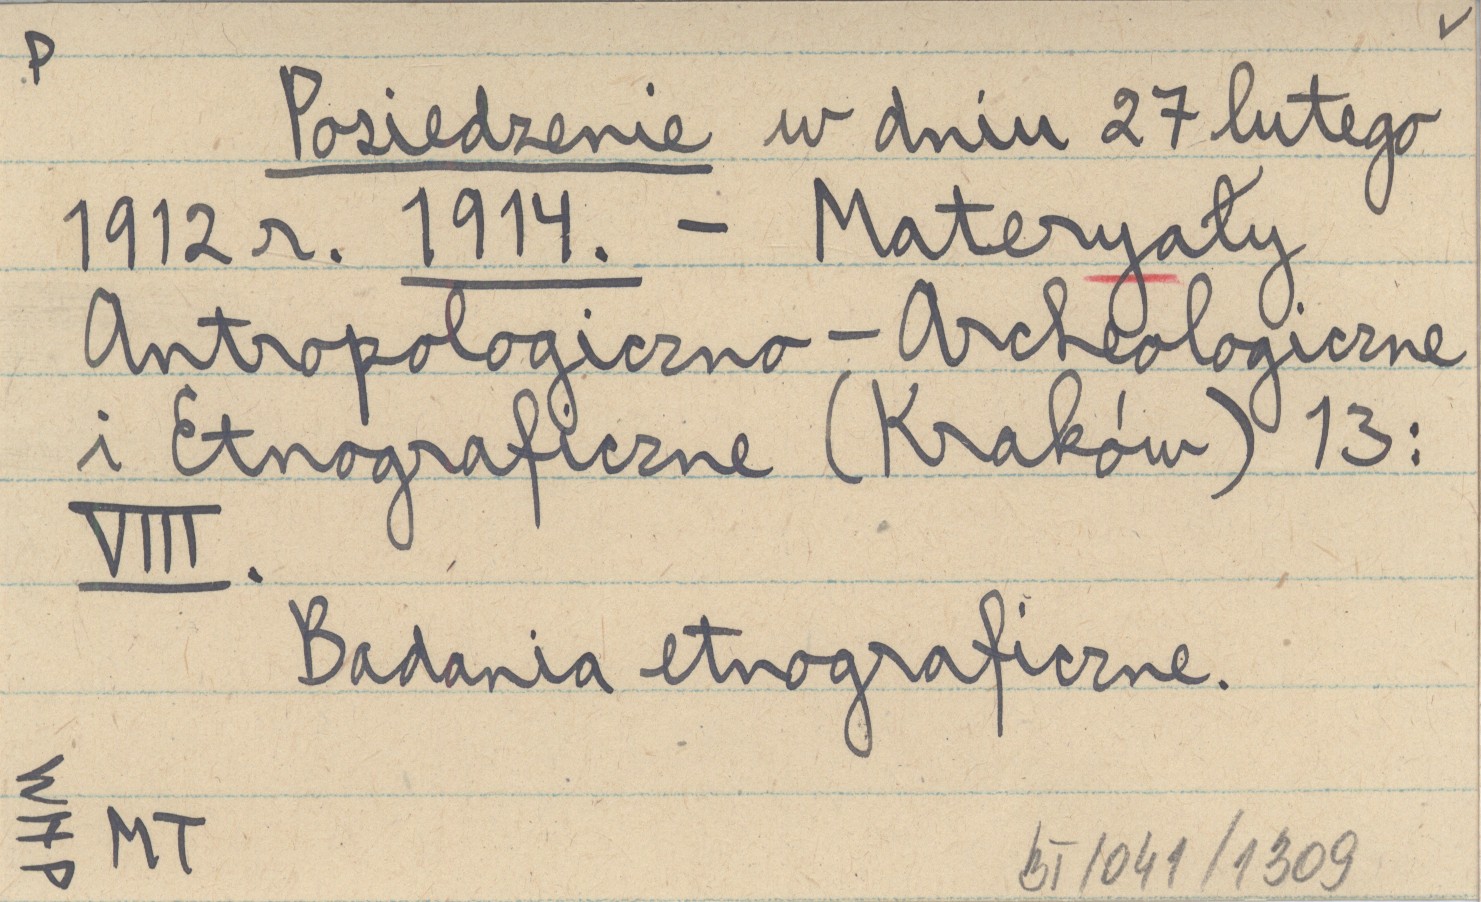 P
Posiedzenie w dniu 27 lutego
1912 r. 1914. - Materyały
Antropologiczno - Archeologiczne
i Etnograficzne (Kraków) 13:
VIII.
Badania etnograficzne.
WHP
MT
BI/041/1309